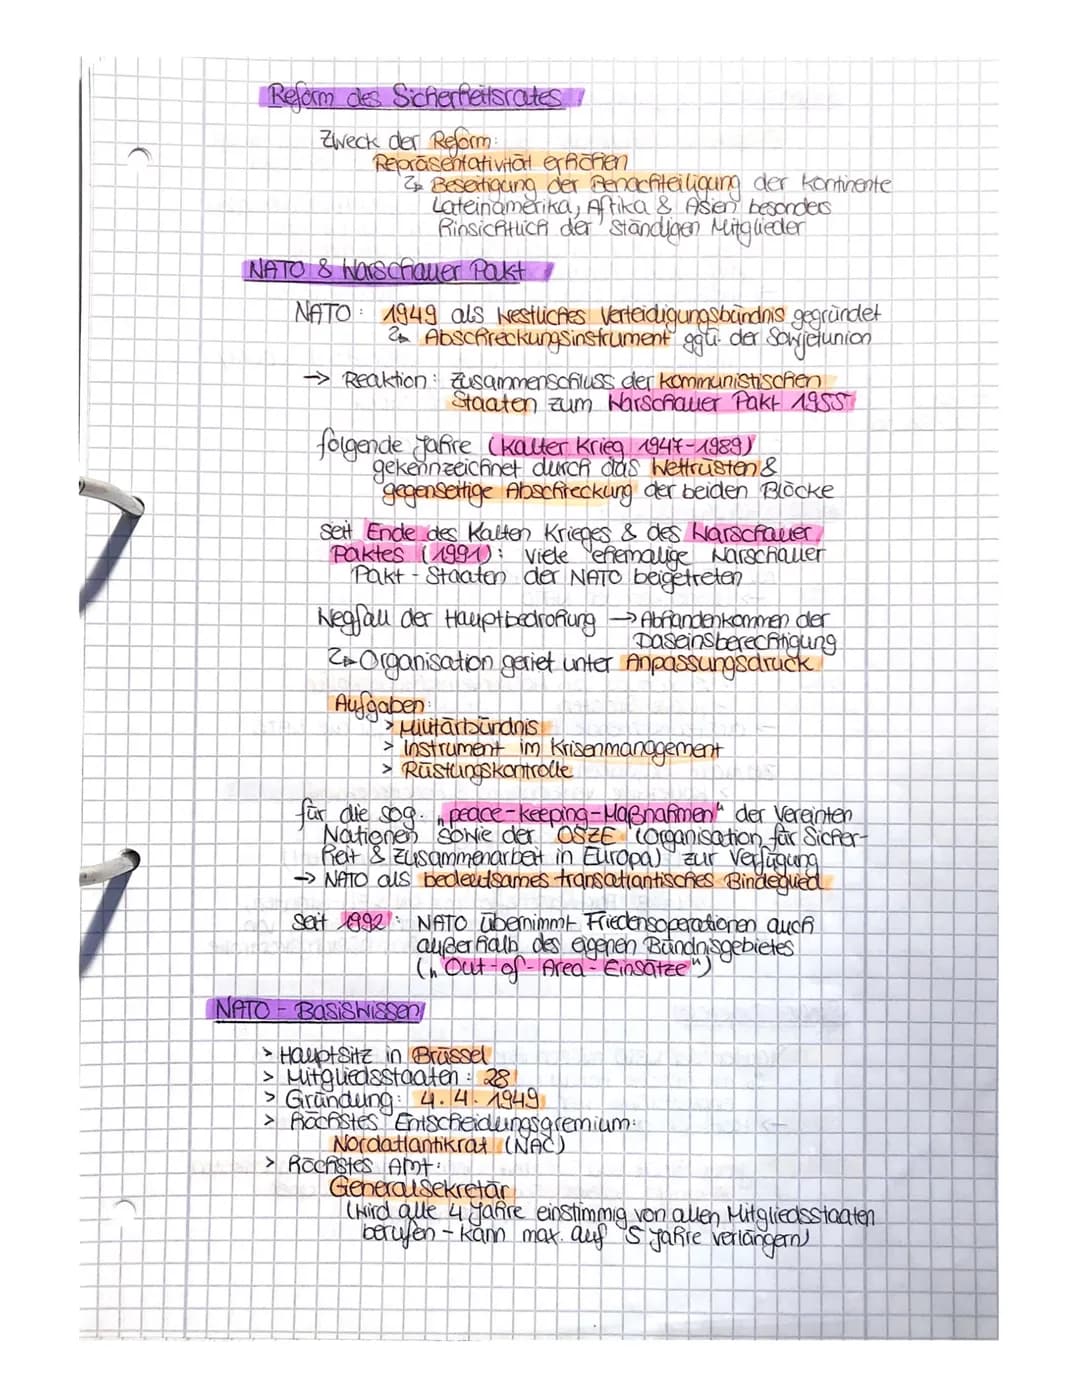 Reform des Sicherheitsrates
Zweck der Reform:
Repräsentativität erhöhen
↳ Beseitigung der Benachteiligung der Kontinente
Lateinamerika, Afrika & Asien besonders
hinsichtlich der Ständigen Mitglieder
NATO & Warschauer Pakt
NATO: 1949 als westliches Verteidigungsbündnis gegründet
↳ Abschreckungsinstrument ggü. der Sowjetunion
→ Reaktion: Zusammenschluss der kommunistischen
Staaten zum Warschauer Pakt 1955
folgende Jahre (Kalter Krieg 1947-1989)
gekennzeichnet durch das Wettrüsten &
gegenseitige Abschreckung der beiden Blöcke
seit Ende des Kalten Krieges & des Warschauer
Paktes (1991): viele ehemalige Warschauer
Pakt-Staaten der NATO beigetreten
Wegfall der Hauptbedrohung → Abhandenkommen der
Daseinsberechtigung
↳ Organisation geriet unter Anpassungsdruck
Aufgaben:
> Militärbündnis
> Instrument im Krisenmanagement
> Rüstungskontrolle
für die sog. „peace-keeping-Maßnahmen" der Vereinten
Nationen sowie der OSZE (Organisation für Sicher-
heit & Zusammenarbeit in Europa) zur Verfügung
→ NATO als bedeutsames transatlantisches Bindeglied
seit 1992: NATO übernimmt Friedensoperationen auch
außerhalb des eigenen Bündnisgebietes
(„Out-of-Area-Einsätze")
NATO - Basiswissen
> Hauptsitz in Brüssel
> Mitgliedsstaaten: 28
> Gründung: 4.4.1949
> höchstes Entscheidungsgremium:
Nordatlantikrat (NAC)
> höchstes Amt:
Generalsekretär
(wird alle 4 Jahre einstimmig von allen Mitgliedsstaaten
berufen - kann max. auf 5 Jahre verlängern)